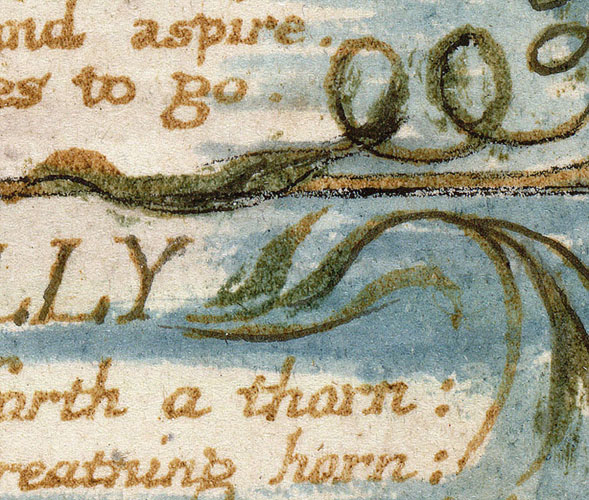 and aspire.
es to go.
LLY
forth a thorn:
reatning horn: